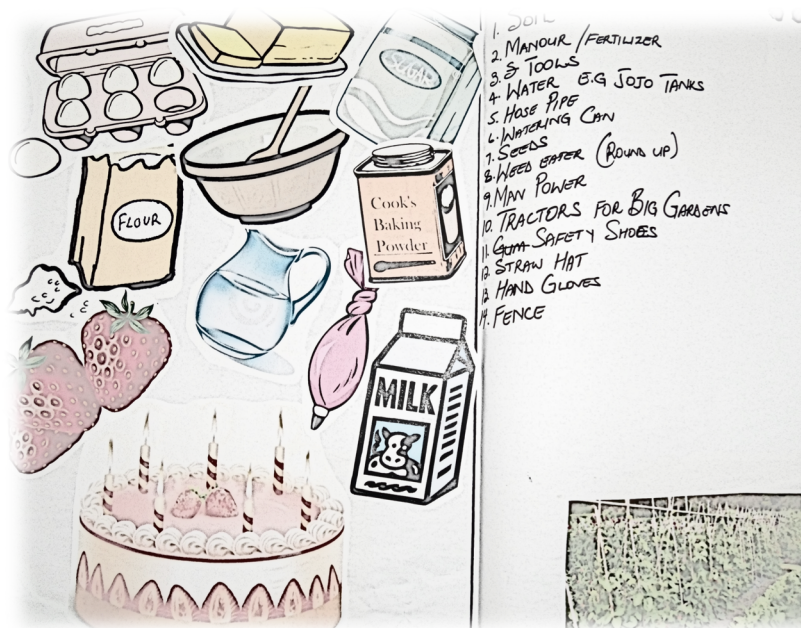 SUGAR
FLOUR
Cook's
Baking
Powder
MILK
1. SOIL
2. MANOUR / FERTILIZER
3. & TOOLS
4. WATER E.G JOJO TANKS
5. HOSE PIPE
6. WATERING CAN
7. SEEDS
8. WEED EATER (ROUND UP)
9. MAN POWER
10. TRACTORS FOR BIG GARDENS
11. GUM SAFETY SHOES
12. STRAW HAT
13. HAND GLOVES
14. FENCE